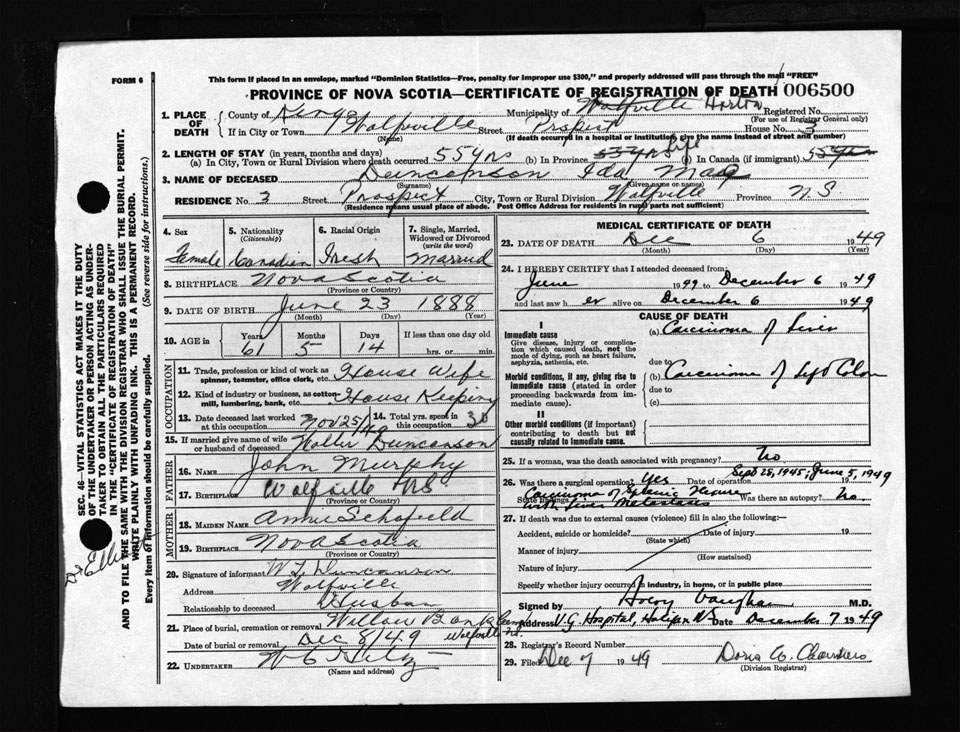 FORM 6
This form if placed in an envelope, marked "Dominion Statistics—Free, penalty for improper use $300," and properly addressed will pass through the mail "FREE"
PROVINCE OF NOVA SCOTIA—CERTIFICATE OF REGISTRATION OF DEATH 006500
1. PLACE OF DEATH
County of Kings Municipality of Wolfville Horton Registered No.
(For use of Registrar General only)
If in City or Town Wolfville Street Prospect House No. 3
(Name) (If death occurred in a hospital or institution, give the name instead of street and number)
2. LENGTH OF STAY (in years, months and days)
(a) In City, Town or Rural Division where death occurred 55 yrs (b) In Province 55 yrs Life (c) In Canada (if immigrant) 55 yrs
3. NAME OF DECEASED Duncanson Ida May
(Surname) (Given name or names)
RESIDENCE No. 3 Street Prospect City, Town or Rural Division Wolfville Province NS
(Residence means usual place of abode. Post Office Address for residents in rural parts not sufficient)
4. Sex Female
5. Nationality (Citizenship) Canadian
6. Racial Origin Irish
7. Single, Married, Widowed or Divorced (write the word) Married
8. BIRTHPLACE Nova Scotia
(Province or Country)
9. DATE OF BIRTH June 23 1888
(Month) (Day) (Year)
10. AGE in Years 61 Months 5 Days 14 If less than one day old
hrs. or min.
OCCUPATION
11. Trade, profession or kind of work as spinner, teamster, office clerk, etc. House Wife
12. Kind of industry or business, as cotton mill, lumbering, bank, etc. House Keeping
13. Date deceased last worked at this occupation Nov 25/49
14. Total yrs. spent in this occupation 30
15. If married give name of wife or husband of deceased Walter Duncanson
FATHER
16. NAME John Murphy
17. BIRTHPLACE Wolfville NS
(Province or Country)
MOTHER
18. MAIDEN NAME Annie Schofield
19. BIRTHPLACE Nova Scotia
(Province or Country)
20. Signature of informant W L Duncanson
Address Wolfville
Relationship to deceased Husban
21. Place of burial, cremation or removal Willow Bank
Date of burial or removal Dec 8/49 Wolfville
22. UNDERTAKER
(Name and address)
MEDICAL CERTIFICATE OF DEATH
23. DATE OF DEATH Dec 6 1949
(Month) (Day)
24. I HEREBY CERTIFY that I attended deceased from:
June 1949 to December 6 1949
and last saw her alive on December 6 1949
CAUSE OF DEATH
I
Immediate cause
Give disease, injury or complication which caused death, not the mode of dying, such as heart failure, asphyxia, asthenia, etc.
(a) Carcinoma of Liver
due to
Morbid conditions, if any, giving rise to immediate cause (stated in order proceeding backwards from immediate cause).
(b) Carcinoma of Left Colon
due to
(c)
II
Other morbid conditions (if important) contributing to death but not causally related to immediate cause.
25. If a woman, was the death associated with pregnancy? No
Sept 25, 1945; June 5, 1949
26. Was there a surgical operation? Yes Date of operation
State findings Carcinoma of Splenic Flexure with Liver Metastasis Was there an autopsy? No
27. If death was due to external causes (violence) fill in also the following:—
Accident, suicide or homicide? Date of injury 19
(State which)
Manner of injury
(How sustained)
Nature of injury
Specify whether injury occurred in industry, in home, or in public place
Signed by Vaughan M.D.
Address V.G. Hospital, Halifax NS Date December 7 1949
28. Registrar's Record Number
29. Filed Dec 7 1949 Doris Chambers
(Division Registrar)
SEC. 46—VITAL STATISTICS ACT MAKES IT THE DUTY
OF THE UNDERTAKER OR PERSON ACTING AS UNDER-
TAKER TO OBTAIN ALL THE PARTICULARS REQUIRED
IN THE "CERTIFICATE OF REGISTRATION OF DEATH"
AND TO FILE THE SAME WITH THE DIVISION REGISTRAR WHO SHALL ISSUE THE BURIAL PERMIT.
WRITE PLAINLY WITH UNFADING INK. THIS IS A PERMANENT RECORD.
Every item of information should be carefully supplied. (See reverse side for instructions.)